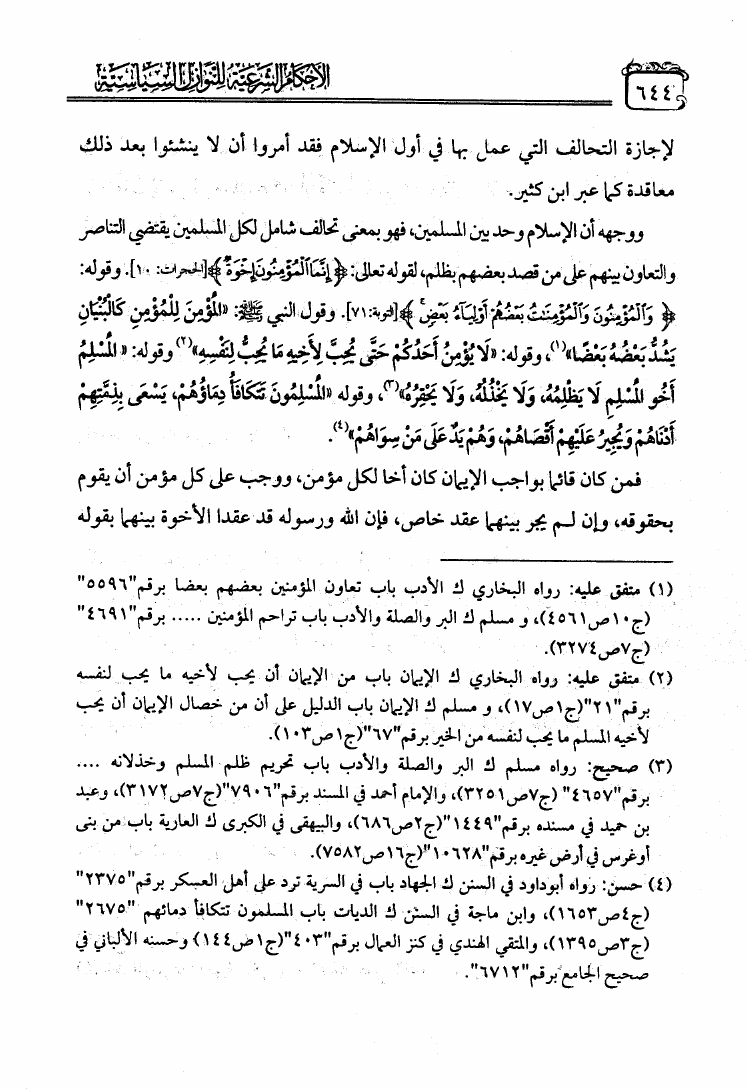 الأحكام الشرعية للنوازل السياسية
٦٤٤
لإجازة التحالف التي عمل بها في أول الإسلام فقد أمروا أن لا ينشئوا بعد ذلك
معاقدة كما عبر ابن كثير.
ووجهه أن الإسلام وحد بين المسلمين، فهو بمعنى تحالف شامل لكل المسلمين يقتضي التناصر
والتعاون بينهم على من قصد بعضهم بظلم، لقوله تعالى: ﴿إِنَّمَا الْمُؤْمِنُونَ إِخْوَةٌ﴾[الحجرات: ١٠]. وقوله:
﴿وَالْمُؤْمِنُونَ وَالْمُؤْمِنَاتُ بَعْضُهُمْ أَوْلِيَاءُ بَعْضٍ﴾[التوبة: ٧١]. وقول النبي ﷺ: «الْمُؤْمِنَ لِلْمُؤْمِنِ كَالْبُنْيَانِ
يَشُدُّ بَعْضُهُ بَعْضًا»(١)، وقوله: «لَا يُؤْمِنُ أَحَدُكُمْ حَتَّى يُحِبَّ لِأَخِيهِ مَا يُحِبُّ لِنَفْسِهِ»(٢) وقوله: «الْمُسْلِمُ
أَخُو الْمُسْلِمِ لَا يَظْلِمُهُ، وَلَا يَخْذُلُهُ، وَلَا يَحْقِرُهُ»(٣)، وقوله «الْمُسْلِمُونَ تَتَكَافَأُ دِمَاؤُهُمْ، يَسْعَى بِذِمَّتِهِمْ
أَدْنَاهُمْ وَيُجِيرُ عَلَيْهِمْ أَقْصَاهُمْ، وَهُمْ يَدٌ عَلَى مَنْ سِوَاهُمْ»(٤).
فمن كان قائما بواجب الإيمان كان أخا لكل مؤمن، ووجب على كل مؤمن أن يقوم
بحقوقه، وإن لـم يجر بينهما عقد خاص، فإن الله ورسوله قد عقدا الأخوة بينهما بقوله
(١) متفق عليه: رواه البخاري ك الأدب باب تعاون المؤمنين بعضهم بعضا برقم"٥٥٩٦"
(ج١٠ص٤٥٦١)، و مسلم ك البر والصلة والأدب باب تراحم المؤمنين ..... برقم"٤٦٩١"
(ج٧ص٣٢٧٤).
(٢) متفق عليه: رواه البخاري ك الإيمان باب من الإيمان أن يحب لأخيه ما يحب لنفسه
برقم"٢١"(ج١ص١٧)، و مسلم ك الإيمان باب الدليل على أن من خصال الإيمان أن يحب
لأخيه المسلم ما يحب لنفسه من الخير برقم"٦٧"(ج١ص١٠٣).
(٣) صحيح: رواه مسلم ك البر والصلة والأدب باب تحريم ظلم المسلم وخذلانه ....
برقم"٤٦٥٧" (ج٧ص٣٢٥١)، والإمام أحمد في المسند برقم"٧٩٠٦"(ج٧ص٣١٧٢)، وعبد
بن حميد في مسنده برقم"١٤٤٩"(ج٢ص٦٨٦)، والبيهقى في الكبرى ك العارية باب من بنى
أوغرس في أرض غيره برقم"١٠٦٢٨"(ج١٦ص٧٥٨٢).
(٤) حسن: رواه أبوداود في السنن ك الجهاد باب في السرية ترد على أهل العسكر برقم"٢٣٧٥"
(ج٤ص١٦٥٣)، وابن ماجة في السنن ك الديات باب المسلمون تتكافأ دمائهم "٢٦٧٥"
(ج٣ص١٣٩٥)، والمتقي الهندي في كنز العمال برقم"٤٠٣"(ج١ص١٤٤) وحسنه الألباني في
صحيح الجامع برقم"٦٧١٢".